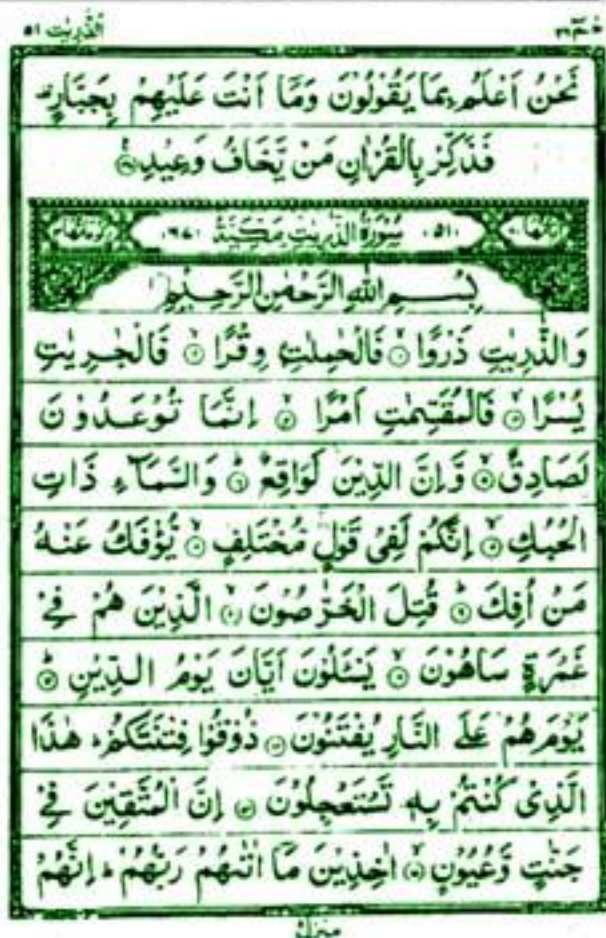 الذّٰریٰت ۵۱
حٰمٓ ۲۶
نَحْنُ اَعْلَمُ بِمَا یَقُوْلُوْنَ وَمَاۤ اَنْتَ عَلَیْهِمْ بِجَبَّارٍ
فَذَكِّرْ بِالْقُرْاٰنِ مَنْ یَّخَافُ وَعِیْدِ ۴۵
اٰیاتها ۶۰ (۵۱) سُوْرَةُ الذّٰرِیٰتِ مَكِّیَّةٌ (۶۷) رکوعاتها ۳
بِسْمِ اللهِ الرَّحْمٰنِ الرَّحِیْمِ
وَالذّٰرِیٰتِ ذَرْوًا ۱ فَالْحٰمِلٰتِ وِقْرًا ۲ فَالْجٰرِیٰتِ
یُسْرًا ۳ فَالْمُقَسِّمٰتِ اَمْرًا ۴ اِنَّمَا تُوْعَدُوْنَ
لَصَادِقٌ ۵ وَّاِنَّ الدِّیْنَ لَوَاقِعٌ ۶ وَالسَّمَآءِ ذَاتِ
الْحُبُكِ ۷ اِنَّكُمْ لَفِیْ قَوْلٍ مُّخْتَلِفٍ ۸ یُّؤْفَكُ عَنْهُ
مَنْ اُفِكَ ۹ قُتِلَ الْخَرّٰصُوْنَ ۱۰ الَّذِیْنَ هُمْ فِیْ
غَمْرَةٍ سَاهُوْنَ ۱۱ یَسْئَلُوْنَ اَیَّانَ یَوْمُ الدِّیْنِ ۱۲
یَوْمَ هُمْ عَلَی النَّارِ یُفْتَنُوْنَ ۱۳ ذُوْقُوْا فِتْنَتَكُمْ هٰذَا
الَّذِیْ كُنْتُمْ بِهٖ تَسْتَعْجِلُوْنَ ۱۴ اِنَّ الْمُتَّقِیْنَ فِیْ
جَنّٰتٍ وَّعُیُوْنٍ ۱۵ اٰخِذِیْنَ مَاۤ اٰتٰىهُمْ رَبُّهُمْ اِنَّهُمْ
منزل